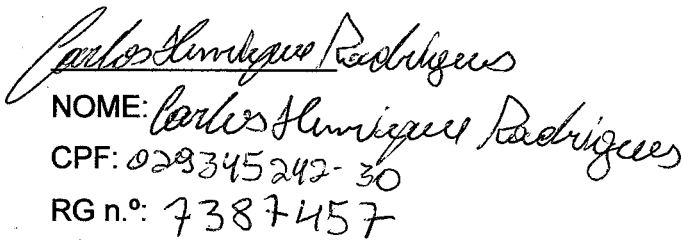 Carlos Henrique Rodrigues
NOME: Carlos Henrique Rodrigues
CPF: 029345242-30
RG n.º: 7387457